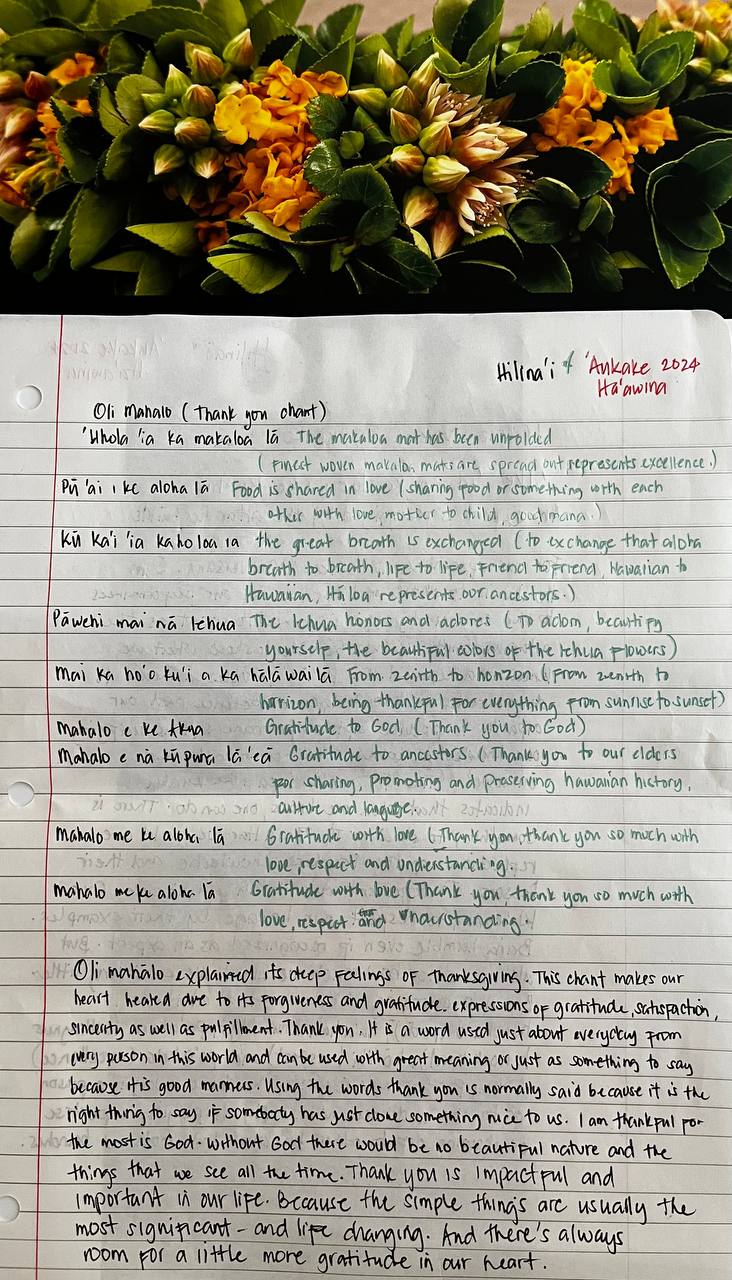 Hilina'i 'Aukake 2024
Ha'awina
Oli mahalo (Thank you chant)
'Uhola 'ia ka makaloa lā The makaloa mat has been unfolded
(Finest woven makaloa mats are spread out represents excellence.)
Pū 'ai i ke aloha lā Food is shared in love (sharing food or something with each
other with love, mother to child, good mana.)
Kū ka'i 'ia kaha loa ra the great breath is exchanged (to exchange that aloha
breath to breath, life to life, Friend to friend, Hawaiian to
Hawaiian, Hā loa represents our ancestors.)
Pāwehi mai nā lehua The lehua honors and adores (To adorn, beautify
yourself, the beautiful colors of the lehua flowers)
Mai ka ho'o ku'i a ka hālā wai lā From zenith to horizon (From zenith to
horrizon, being thankful for everything from sunrise to sunset)
Mahalo e ke Akua Gratitude to God (Thank you to God)
Mahalo e nā kūpuna lā 'eā Gratitude to ancestors (Thank you to our elders
for sharing, promoting and preserving hawaiian history,
culture and language.
Mahalo me ke aloha lā Gratitude with love (Thank you, thank you so much with
love, respect and understanding.
Mahalo me ke aloha lā Gratitude with love (Thank you thank you so much with
love, respect and understanding.
Oli mahalo explained its deep feelings of thanksgiving. This chant makes our
heart healed due to its forgiveness and gratitude. expressions of gratitude, satisfaction,
sincerity as well as fulfillment. Thank you. It is a word used just about everyday from
every person in this world and can be used with great meaning or just as something to say
because it is good manners. Using the words thank you is normally said because it is the
right thing to say if somebody has just done something nice to us. I am thankful for
the most is God. without God there would be no beautiful nature and the
things that we see all the time. Thank you is impactful and
important in our life. Because the simple things are usually the
most significant - and life changing. And there's always
room for a little more gratitude in our heart.